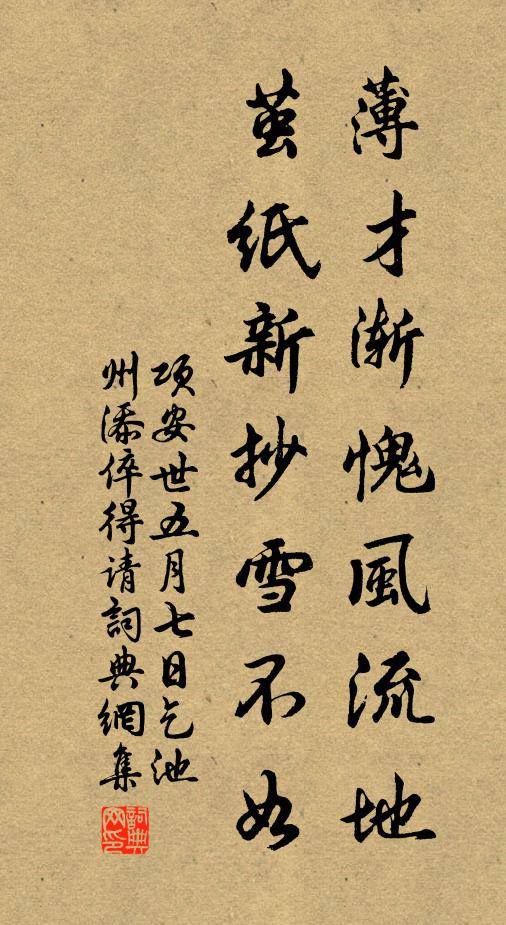 薄才漸愧風流地
茧紙新抄雪不如
项安世五月七日乞池
州添倅得请詞典網集
詞典网印